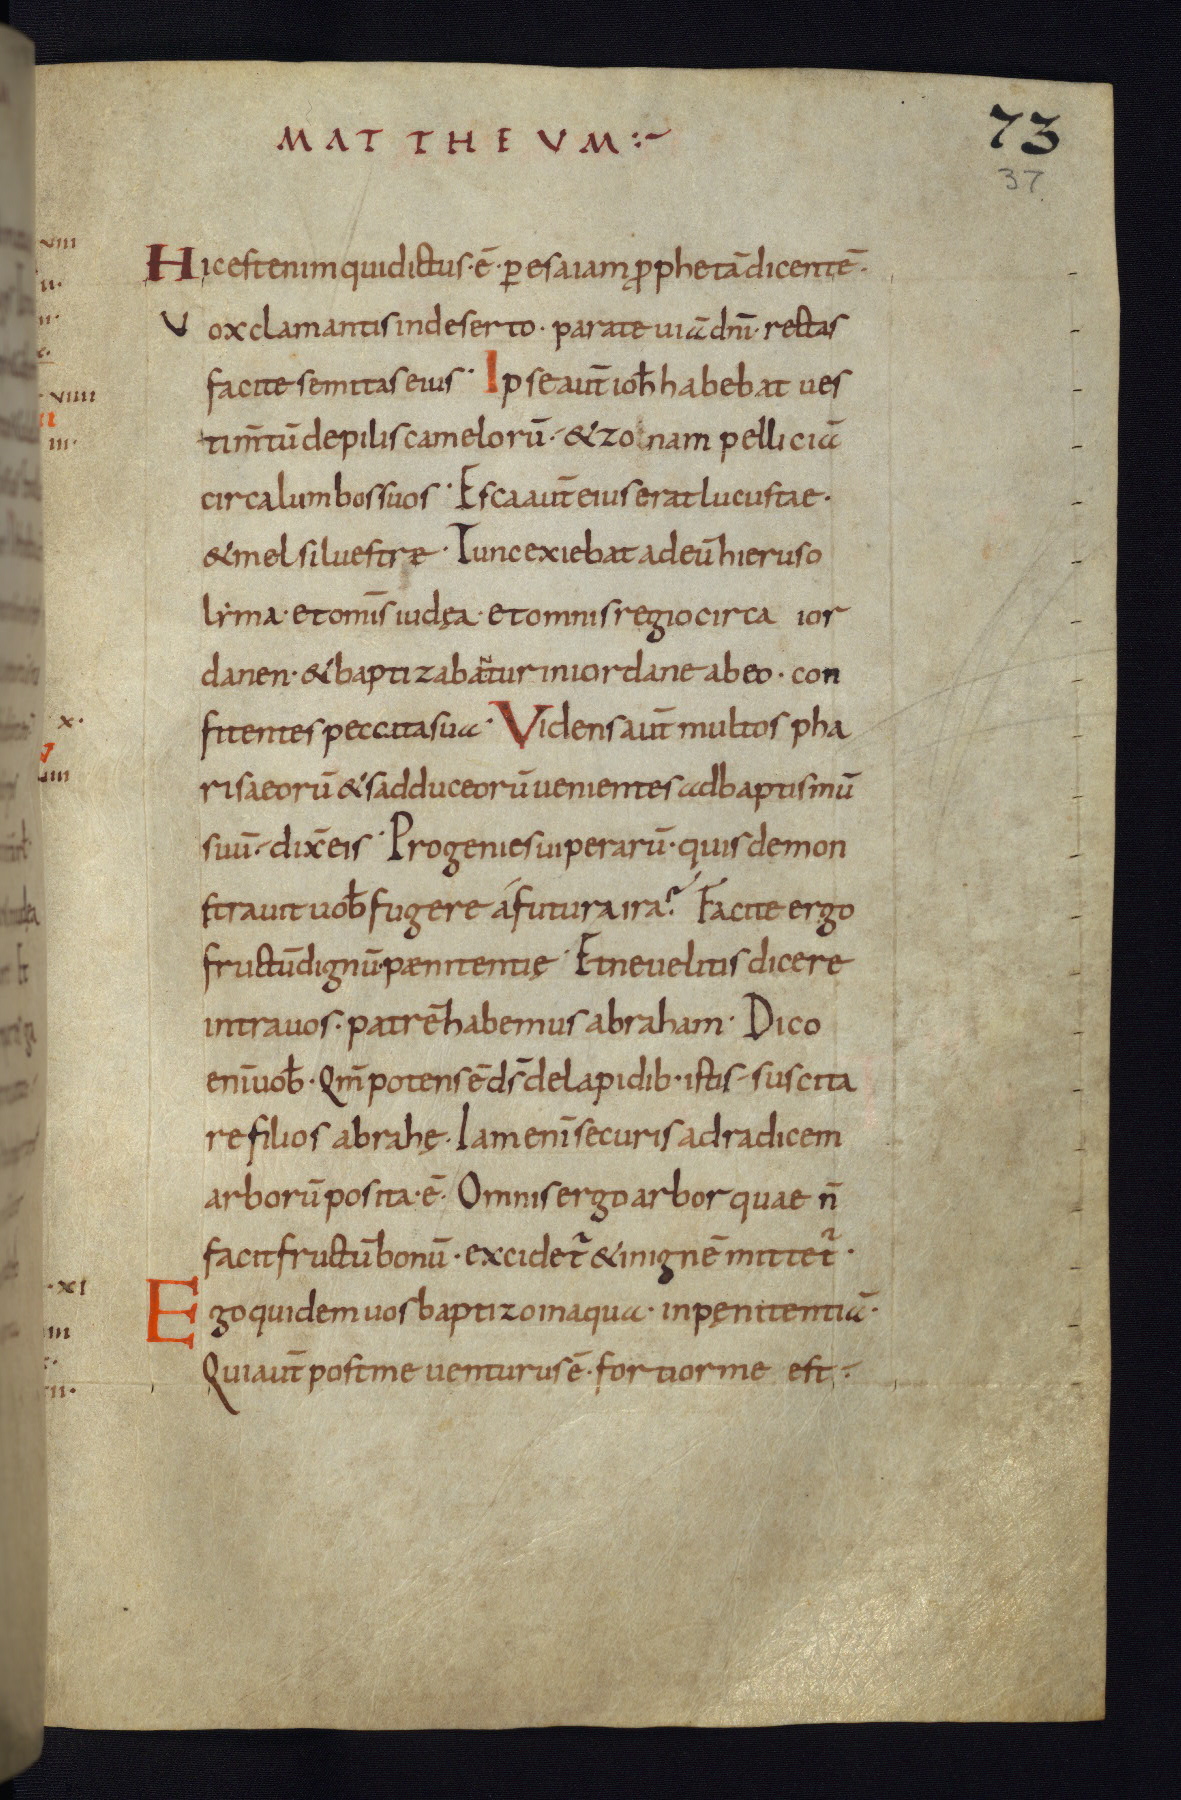 MATTHEUM:~
73
37
Hic est enim qui dictus · ē · ꝑ esaiam ꝓphetā dicentē ·
Vox clamantis in deserto · parate uiā dn̄i · rectas
facite semitas eius · Ipse aut̄ ioh̄ habebat ues
tim̄tū de pilis camelorū · & zonam pelliciā
circa lumbos suos · Esca aut̄ eius erat lucustae ·
& mel siluestre · Tunc exiebat ad eū hieruso
lẏma · et om̄is iudęa · et omnis regio circa ior
danen · & baptizabāt̄ur in iordane ab eo · con
fitentes peccata sua · Videns aut̄ multos pha
risaeorū & sadduceorū uenientes ad baptismū
suū · dix̄ eis · Progenies uiperarū · quis demon
strauit uob̄ fugere á futura ira? Facite ergo
fructū dignū · pænitentię · Et ne uelitis dicere
intra uos · patrē habemus abraham · Dico
enī uob̄ · qm̄ potens ē ds̄ de lapidib · istis suscita
re filios abrahę · Iam enī securis ad radicem
arborū posita · ē · Omnis ergo arbor quae n̄
facit fructū bonū · excidet̄ & in ignē mittet̄ ·
Ego quidem uos baptizo in aqua · in pęnitentiā ·
Qui aut̄ post me uenturus ē · fortior me est ·
viii
viiii
iii·
x·
·xi